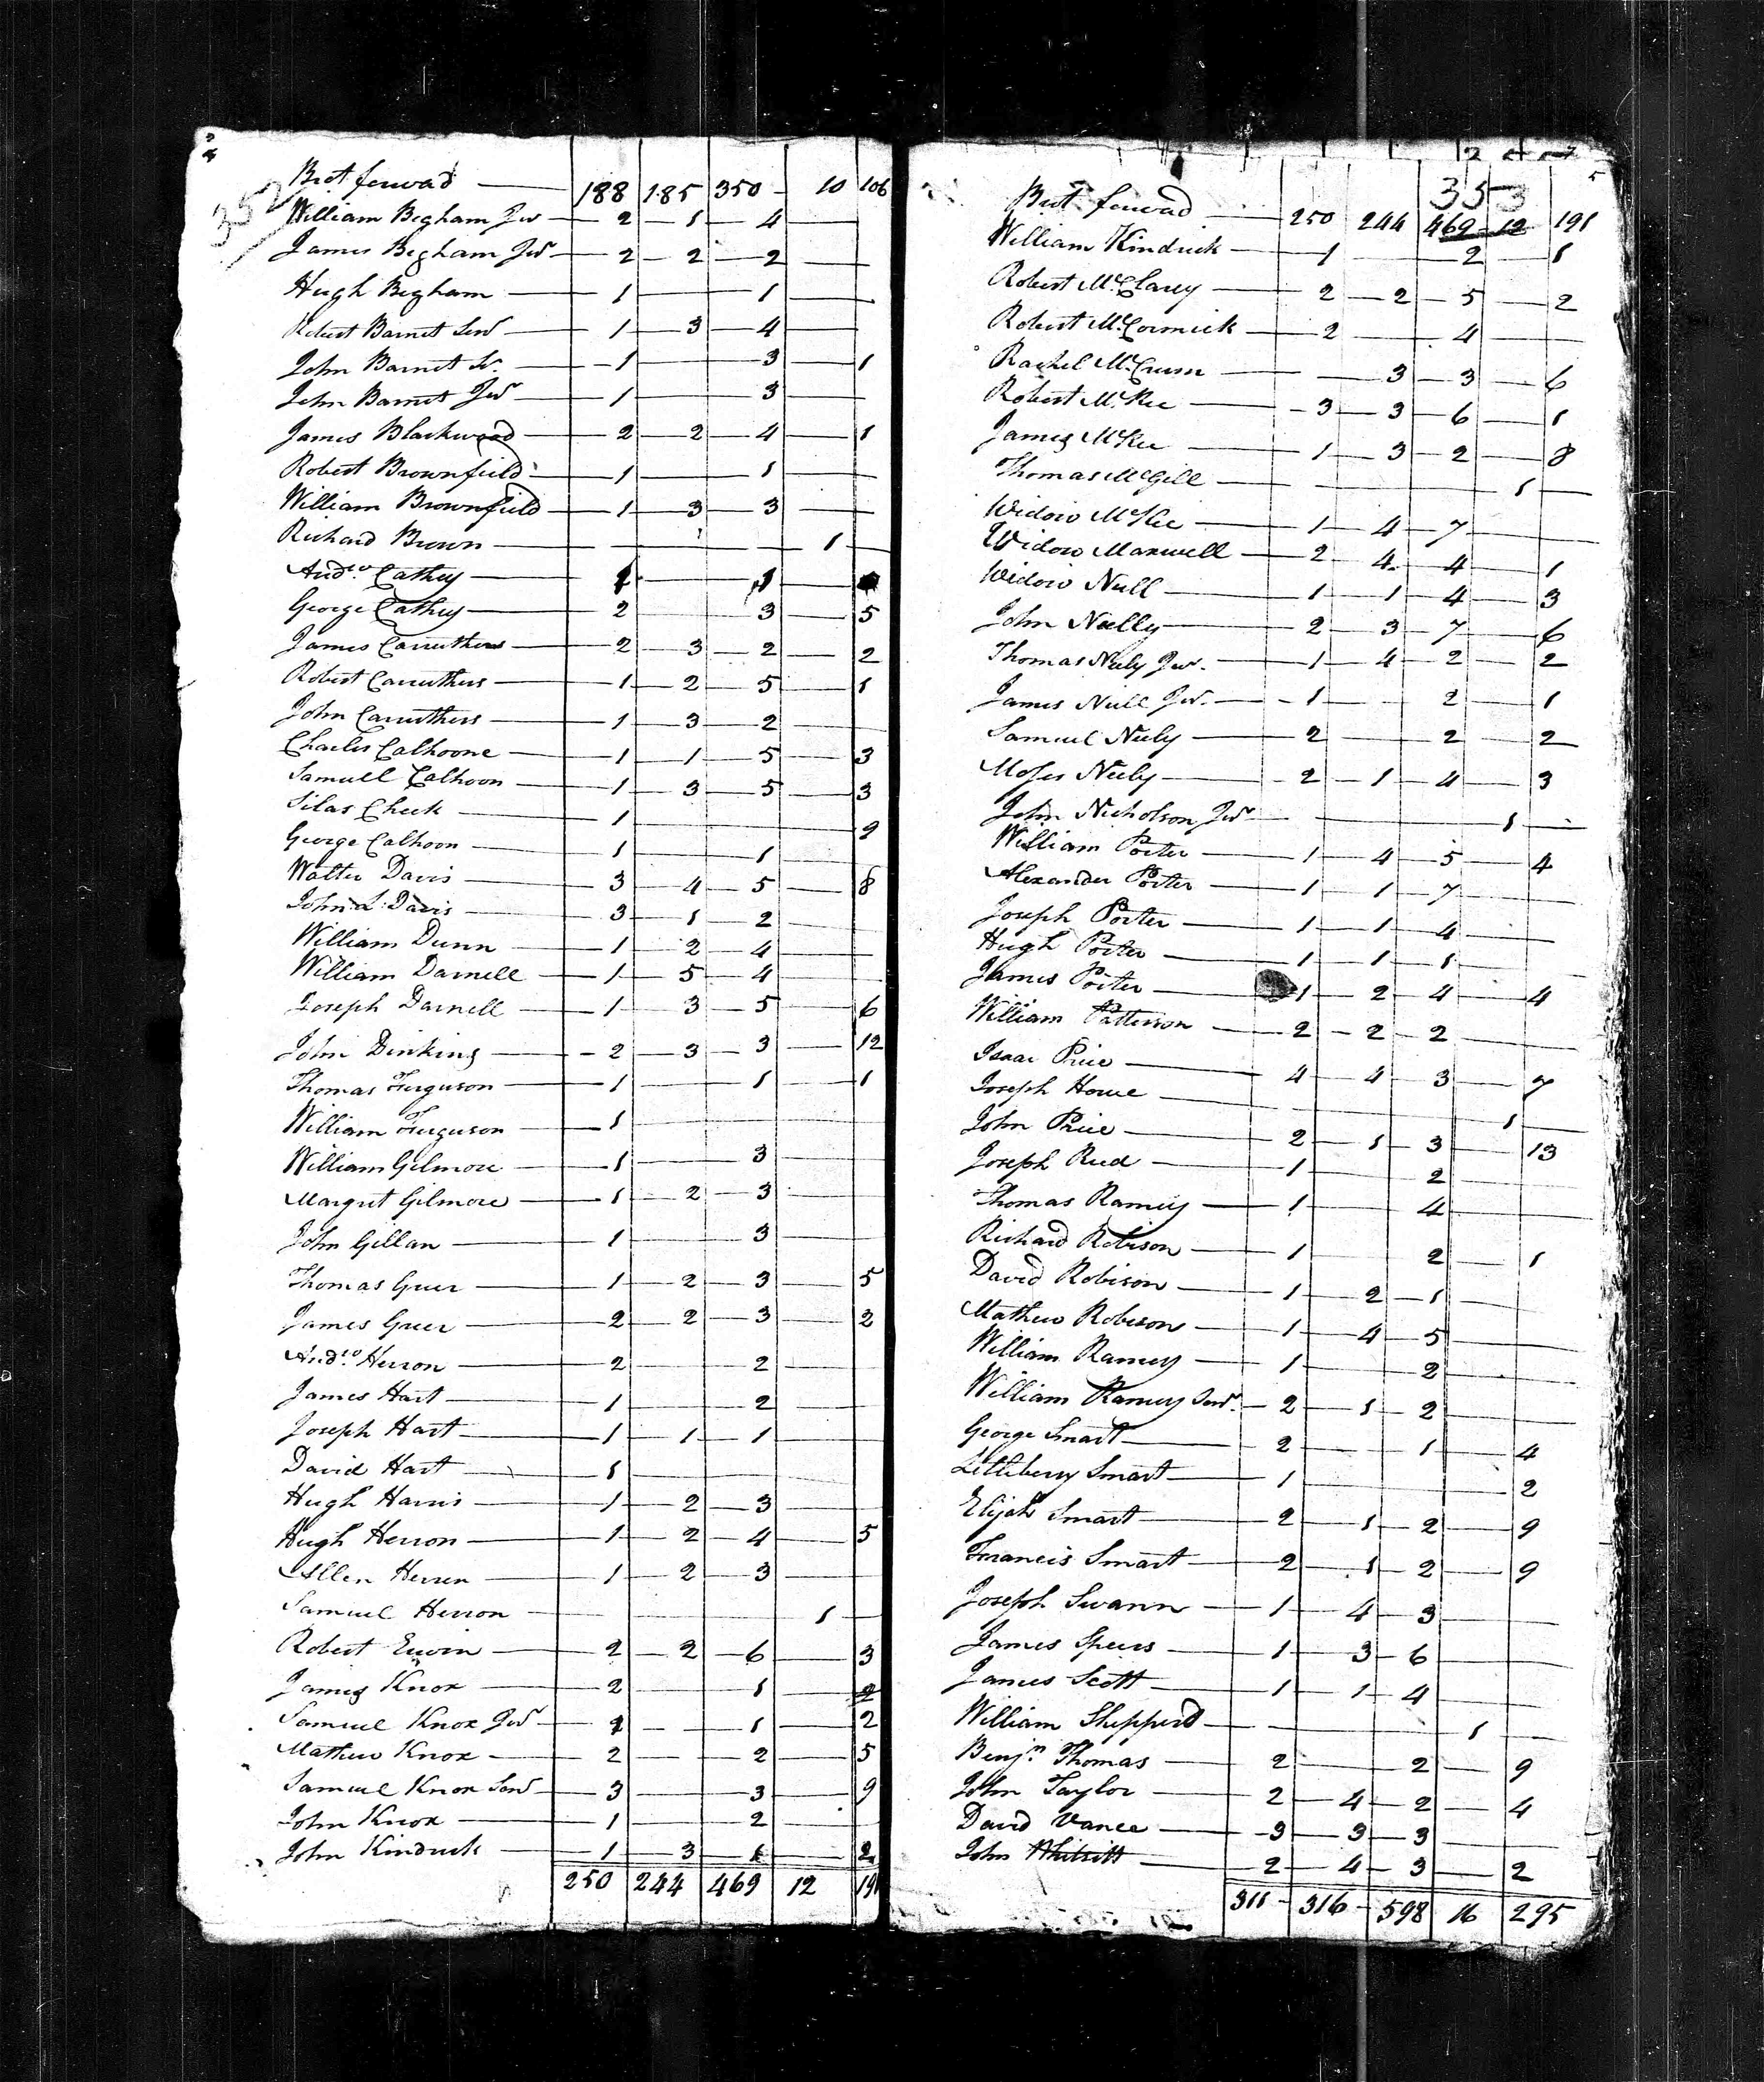 352
Brot forwad 188 185 350 10 106
William Begham Jur 2 1 4
James Begham Jur 2 2 2
Hugh Begham 1 1
Robert Barnet Senr 1 3 4
John Barnet Sr. 1 3 1
John Barnet Jur 1 3
James Blackwood 2 2 4 1
Robert Brownfield 1 1
William Brownfield 1 3 3
Richard Brown 1
Andw. Cathey 1 1
George Cathey 2 3 5
James Carruthers 2 3 2 2
Robert Carruthers 1 2 5 1
John Carruthers 1 3 2
Charles Calhoone 1 1 5 3
Samuell Calhoon 1 3 5 3
Silas Cheek 1 9
George Calhoon 1 1
Walter Davis 3 4 5 8
John L. Davis 3 1 2
William Dunn 1 2 4
William Darnell 1 5 4
Joseph Darnell 1 3 5 6
John Dinking 2 3 3 12
Thomas Ferguson 1 1 1
William Ferguson 1
William Gilmore 1 3
Margret Gilmore 1 2 3
John Gillan 1 3
Thomas Greer 1 2 3 5
James Greer 2 2 3 2
Andw. Herron 2 2
James Hart 1 2
Joseph Hart 1 1 1
David Hart 1
Hugh Harris 1 2 3
Hugh Herron 1 2 4 5
Allen Herren 1 2 3
Samuel Herron 1
Robert Erwin 2 2 6 3
James Knox 2 1 2
Samuel Knox Jur 2 1 2
Mathew Knox 2 2 5
Samuel Knox Senr 3 3 9
John Knox 1 2
John Kindrick 1 3 1 2
250 244 469 12 191
353
Brot forwad 250 244 469 12 191
William Kindrick 1 2 1
Robert McClarey 2 2 5 2
Robert McCormick 2 4
Rachel McCrum 3 3 6
Robert McKee 3 3 6 1
James McKee 1 3 2 8
Thomas McGill 1
Widow McKee 1 4 7
Widow Maxwell 2 4 4 1
Widow Null 1 1 4 3
John Neelly 2 3 7 6
Thomas Neely Jur. 1 4 2 2
James Neill Jur. 1 2 1
Samuel Neely 2 2 2
Moses Neely 2 1 4 3
John Nicholson Jur 1
William Porter 1 4 5 4
Alexander Porter 1 1 7
Joseph Porter 1 1 4
Hugh Porter 1 1 1
James Porter 1 2 4 4
William Patterson 2 2 2
Isaac Price 4 4 3 7
Joseph Howe 1
John Price 2 1 3 13
Joseph Reed 1 2
Thomas Ramey 1 4
Richard Robison 1 2 1
David Robison 1 2 1
Mathew Robison 1 4 5
William Ramey 1 2
William Ramey Senr. 2 1 2
George Smart 2 1 4
Littleberry Smart 1 2
Elijah Smart 2 1 2 9
Francis Smart 2 1 2 9
Joseph Swann 1 4 3
James Spears 1 3 6
James Scott 1 1 4
William Shepperd 1
Benjn. Thomas 2 2 9
John Taylor 2 4 2 4
David Vance 3 3 3
John Whitsitt 2 4 3 2
311 316 598 16 295